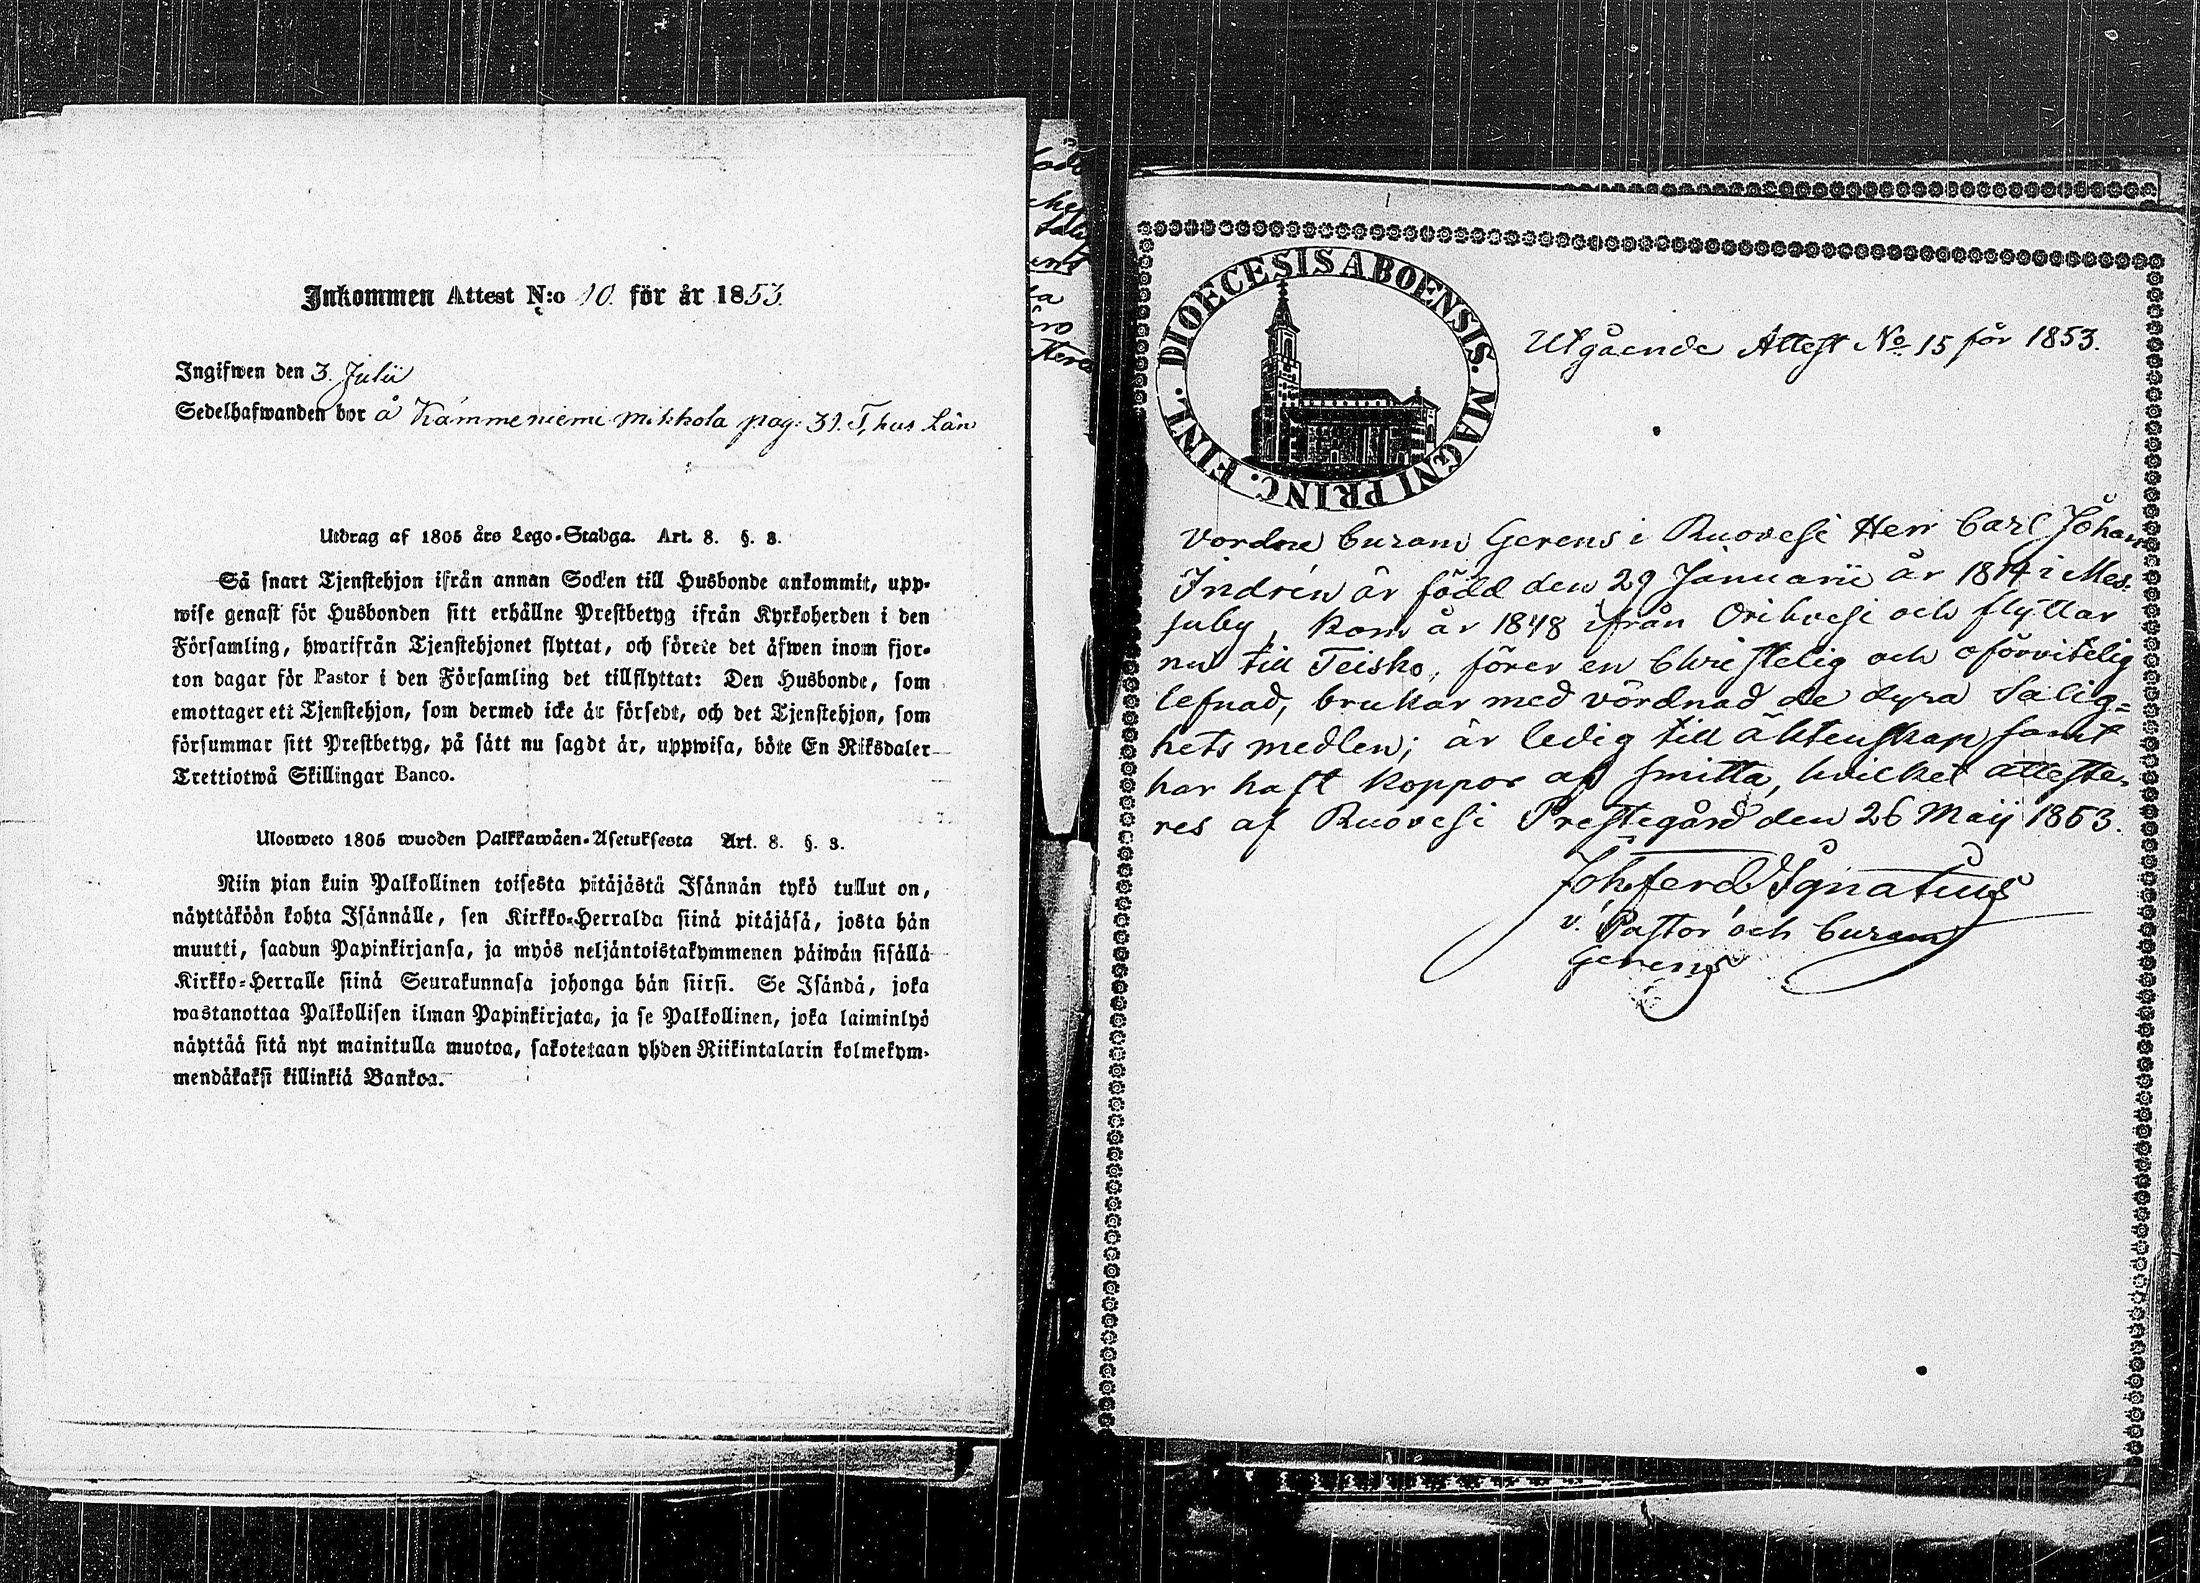 Inkommen Attest N:o 10. för år 1853.
Ingifwen den 3. Julii
Sedelhafwanden bor å Kämmeniemi Mikkola pag: 31. T, hus Län
Utdrag af 1805 års Lego-Stadga. Art. 8. §. 3.
Så snart Tjenstehjon ifrån annan Socken till Husbonde ankommit, upp-
wise genast för Husbonden sitt erhållne Prestbetyg ifrån Kyrkoherden i den
Församling, hwarifrån Tjenstehjonet flyttat, och förete det äfwen inom fjor-
ton dagar för Pastor i den Församling det tillflyttat: Den Husbonde, som
emottager ett Tjenstehjon, som dermed icke är försedt, och det Tjenstehjon, som
försummar sitt Prestbetyg, på sätt nu sagdt är, uppwisa, böte En Riksdaler
Trettiotwå Skillingar Banco.
Ulosweto 1805 wuoden Palkkawäen-Asetuksesta Art. 8. §. 3.
Niin pian kuin Palkollinen toisesta pitäjästä Isännän tykö tullut on,
näyttäköön kohta Isännälle, sen Kirkko-Herralda siinä pitäjäsä, josta hän
muutti, saadun Papinkirjansa, ja myös neljäntoistakymmenen päiwän sisällä
Kirkko-Herralle siinä Seurakunnasa johonga hän siirsi. Se Isändä, joka
wastanottaa Palkollisen ilman Papinkirjata, ja se Palkollinen, joka laiminlyö
näyttää sitä nyt mainitulla muotoa, sakotetaan yhden Riikintalarin kolmekym-
mendäkaksi killinkiä Bankoa.
DIOECESIS ABOENSIS. MAGNI PRINC. FINL.
Utgående Attest No 15 för 1853.
Vordne Curam Gerens i Ruovesi Herr Carl Johan
Indrén är född den 29 Januarii år 1814 i Mes-
suby, kom år 1848 ifrån Orihvesi och flyttar
nu till Teisko, förer en Christelig och oförvitelig
lefnad, brukar med vördnad de dyra Salig=
hets medlen; är ledig till äktenskap samt
har haft koppor af smitta, hvilket atteste-
res af Ruovesi Prestegård den 26 Maij 1853.
Joh. Ferd. Ignatius
v. Pastor och Curam
Gerens